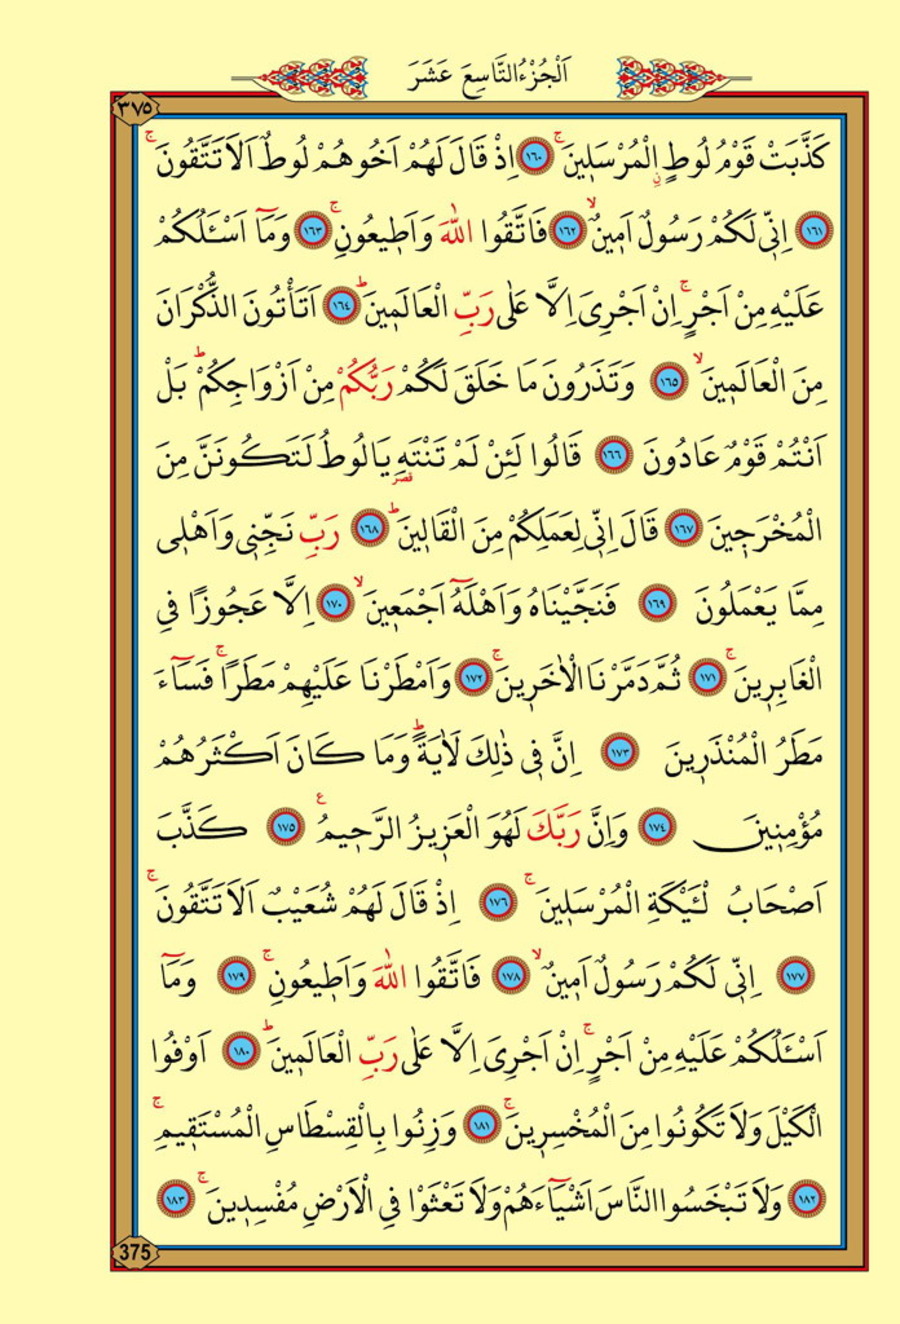 اَلْجُزْءُ التَّاسِعَ عَشَرَ
٣٧٥
كَذَّبَتْ قَوْمُ لُوطٍ الْمُرْسَلٖينَۚ ﴿١٦٠﴾ اِذْ قَالَ لَهُمْ اَخُوهُمْ لُوطٌ اَلَا تَتَّقُونَۚ
﴿١٦١﴾ اِنّٖى لَكُمْ رَسُولٌ اَمٖينٌۙ ﴿١٦٢﴾ فَاتَّقُوا اللّٰهَ وَاَطٖيعُونِۚ ﴿١٦٣﴾ وَمَٓا اَسْـَٔلُكُمْ
عَلَيْهِ مِنْ اَجْرٍۚ اِنْ اَجْرِىَ اِلَّا عَلٰى رَبِّ الْعَالَمٖينَۜ ﴿١٦٤﴾ اَتَأْتُونَ الذُّكْرَانَ
مِنَ الْعَالَمٖينَۙ ﴿١٦٥﴾ وَتَذَرُونَ مَا خَلَقَ لَكُمْ رَبُّكُمْ مِنْ اَزْوَاجِكُمْۜ بَلْ
اَنْتُمْ قَوْمٌ عَادُونَ ﴿١٦٦﴾ قَالُوا لَئِنْ لَمْ تَنْتَهِ يَا لُوطُ لَتَكُونَنَّ مِنَ
الْمُخْرَجٖينَ ﴿١٦٧﴾ قَالَ اِنّٖى لِعَمَلِكُمْ مِنَ الْقَالٖينَۜ ﴿١٦٨﴾ رَبِّ نَجِّنٖى وَاَهْلٖى
مِمَّا يَعْمَلُونَ ﴿١٦٩﴾ فَنَجَّيْنَاهُ وَاَهْلَهُٓ اَجْمَعٖينَۙ ﴿١٧٠﴾ اِلَّا عَجُوزًا فِى
الْغَابِرٖينَۚ ﴿١٧١﴾ ثُمَّ دَمَّرْنَا الْاٰخَرٖينَۚ ﴿١٧٢﴾ وَاَمْطَرْنَا عَلَيْهِمْ مَطَرًاۚ فَسَٓاءَ
مَطَرُ الْمُنْذَرٖينَ ﴿١٧٣﴾ اِنَّ فٖى ذٰلِكَ لَاٰيَةًۜ وَمَا كَانَ اَكْثَرُهُمْ
مُؤْمِنٖينَ ﴿١٧٤﴾ وَاِنَّ رَبَّكَ لَهُوَ الْعَزٖيزُ الرَّحٖيمُ ع ﴿١٧٥﴾ كَذَّبَ
اَصْحَابُ لْـَٔيْكَةِ الْمُرْسَلٖينَۚ ﴿١٧٦﴾ اِذْ قَالَ لَهُمْ شُعَيْبٌ اَلَا تَتَّقُونَۚ
﴿١٧٧﴾ اِنّٖى لَكُمْ رَسُولٌ اَمٖينٌۙ ﴿١٧٨﴾ فَاتَّقُوا اللّٰهَ وَاَطٖيعُونِۚ ﴿١٧٩﴾ وَمَٓا
اَسْـَٔلُكُمْ عَلَيْهِ مِنْ اَجْرٍۚ اِنْ اَجْرِىَ اِلَّا عَلٰى رَبِّ الْعَالَمٖينَۜ ﴿١٨٠﴾ اَوْفُوا
الْكَيْلَ وَلَا تَكُونُوا مِنَ الْمُخْسِرٖينَۚ ﴿١٨١﴾ وَزِنُوا بِالْقِسْطَاسِ الْمُسْتَقٖيمِۚ
﴿١٨٢﴾ وَلَا تَبْخَسُوا النَّاسَ اَشْيَٓاءَهُمْ وَلَا تَعْثَوْا فِى الْاَرْضِ مُفْسِدٖينَۚ ﴿١٨٣﴾
375